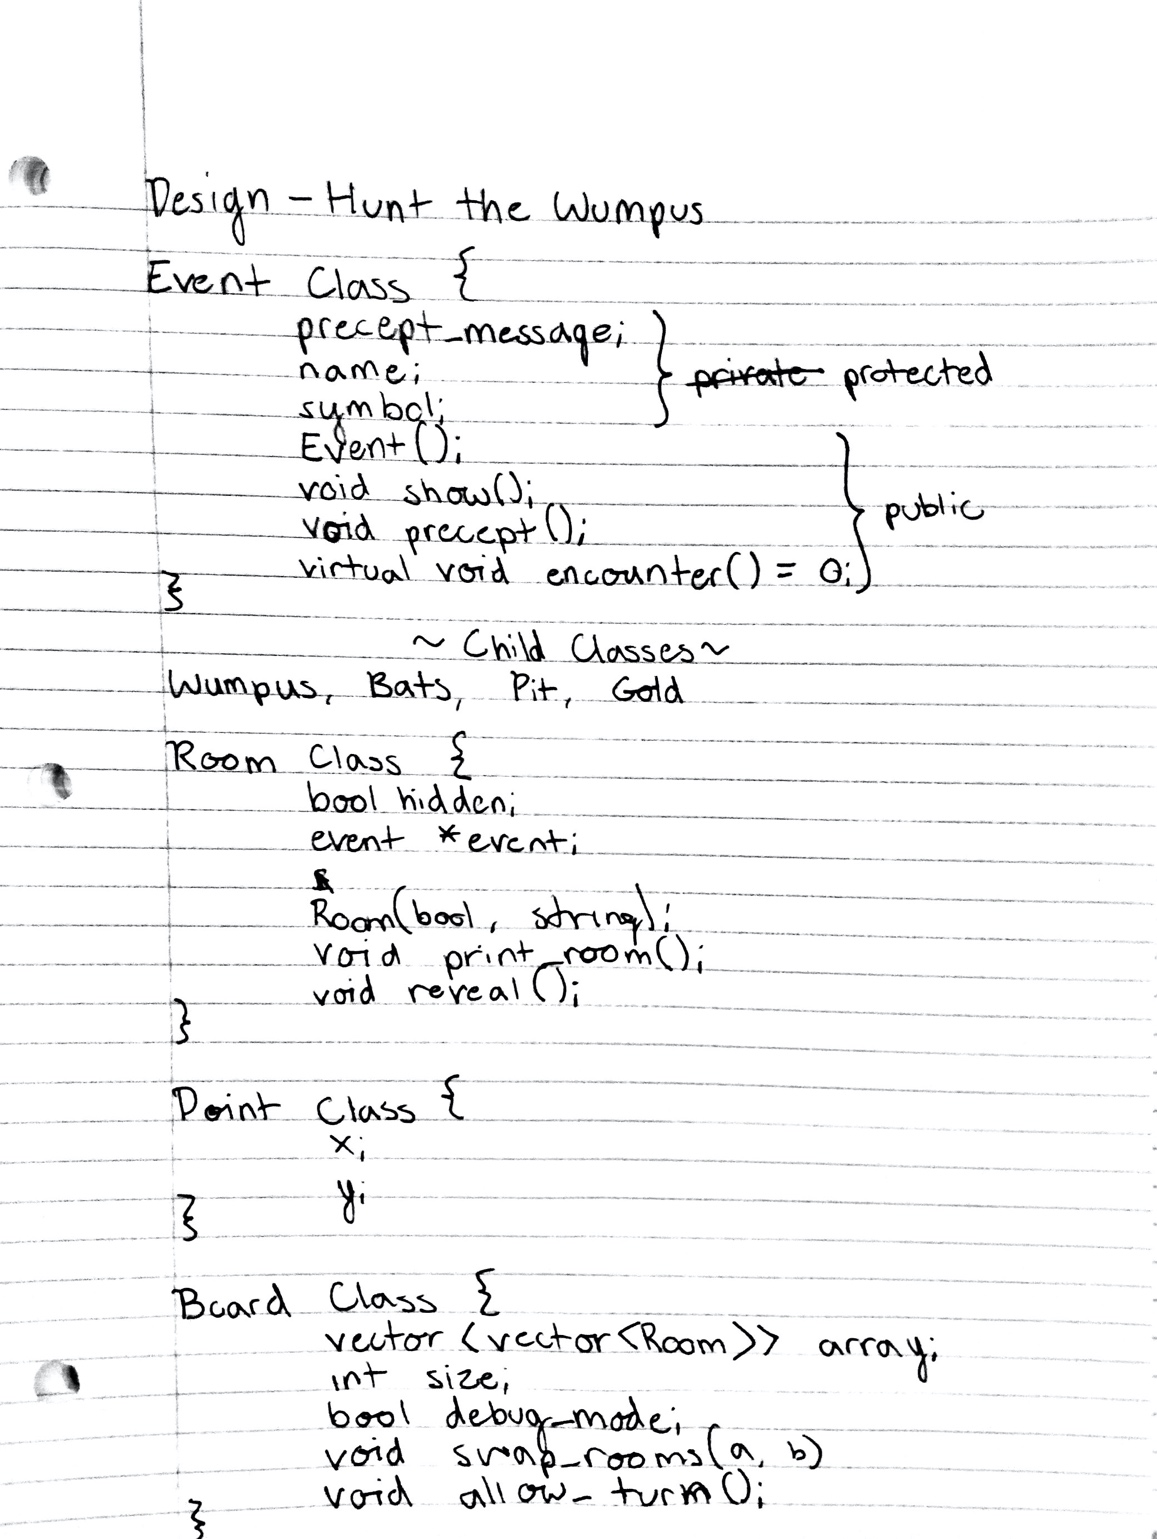 Design - Hunt the Wumpus
Event Class {
precept_message;
name;
symbol;
} private protected
Event();
void show();
void precept();
virtual void encounter() = 0;
} public
}
~ Child Classes ~
Wumpus, Bats, Pit, Gold
Room Class {
bool hidden;
event *event;
Room(bool, string);
void print_room();
void reveal();
}
Point Class {
x;
y;
}
Board Class {
vector <vector<Room>> array;
int size;
bool debug_mode;
void swap_rooms(a, b)
void allow_turn();
}